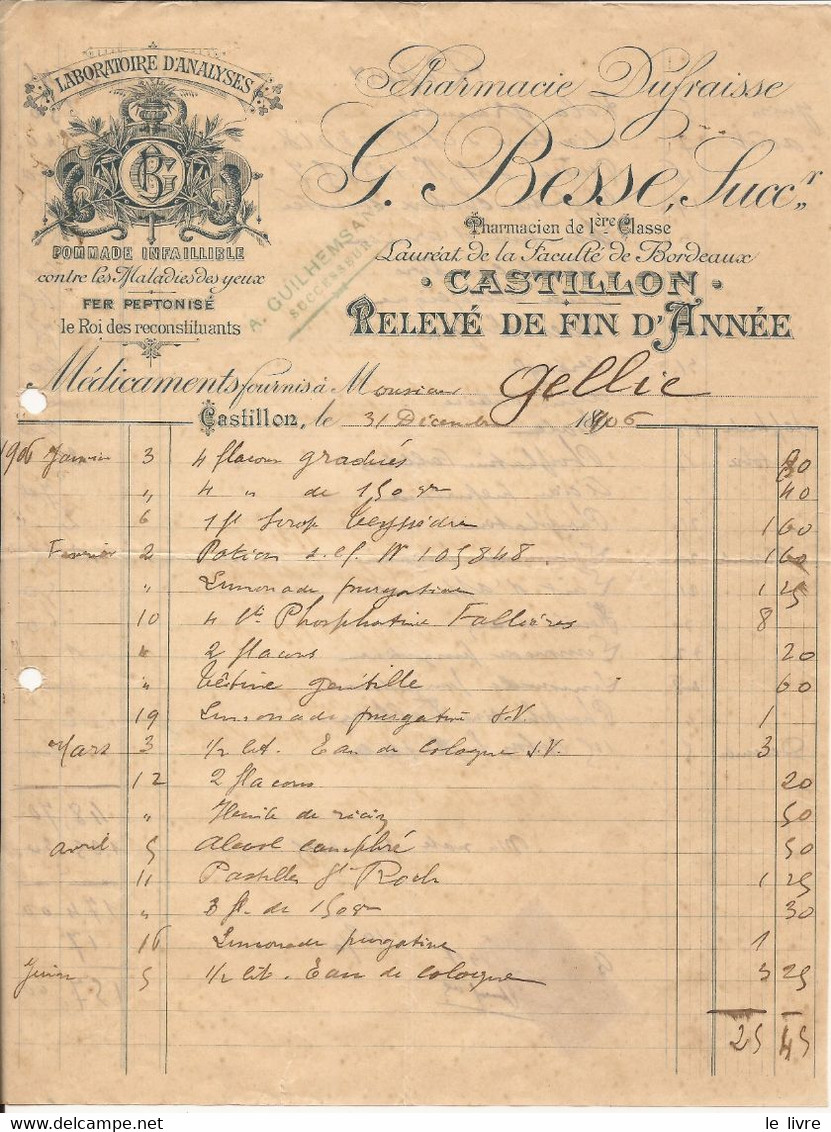 LABORATOIRE D'ANALYSES
POMMADE INFAILLIBLE
contre les Maladies des yeux
FER PEPTONISÉ
le Roi des reconstituants
Pharmacie Dufraisse
G. Besse, Succr
Pharmacien de 1ère Classe
Lauréat de la Faculté de Bordeaux
CASTILLON
RELEVÉ DE FIN D'ANNÉE
A. GUILHEMSANS
SUCCESSEUR
Médicaments fournis à Monsieur Gellie
Castillon, le 31 Décembre 1906
1906 Janvier 3 4 flacons gradués 80
" 4 " de 150 gr 40
6 1 fl Sirop Teyssèdre 1 60
Fevrier 2 Potion s.ef. No 105848. 1 60
" Limonade purgative 1 25
10 4 Bte Phosphatine Fallières 8
" 2 flacons 20
" Tétine gentille 60
19 Limonade purgative S.V. 1
Mars 3 1/2 lit. Eau de Cologne S.V. 3
12 2 flacons 20
" Huile de ricin 50
avril 5 alcool camphré 50
11 Pastilles St Roch 1 25
" 3 fl. de 150 gr 30
16 Limonade purgative 1
Juin 5 1/2 lit. Eau de Cologne 3 25
25 45
le livre